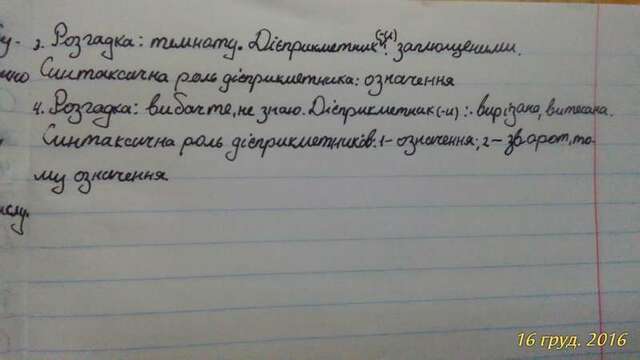 у- 3. Розгадка: темноту. Дієприкметник(-и): заплющеними.
Синтаксична роль дієприкметника: означення
4. Розгадка: вибачте, не знаю. Дієприкметник(-и): вирізана, витесана.
Синтаксична роль дієприкметників: 1- означення; 2- зворот, то-
му означення
ислу.
16 груд. 2016